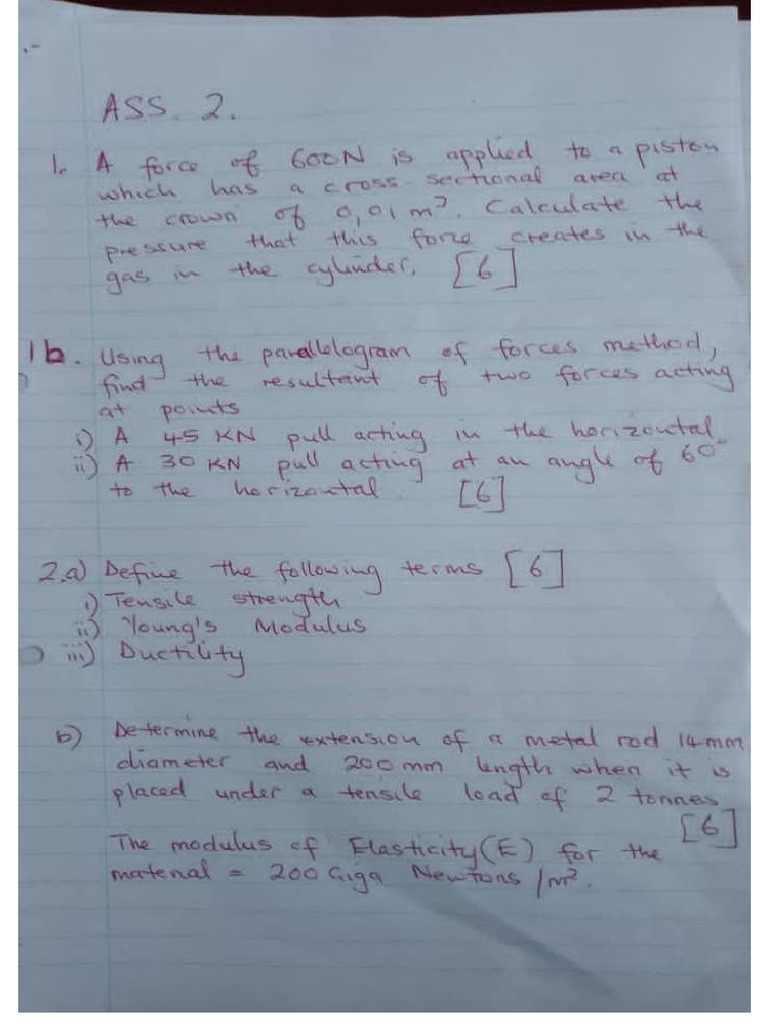 ASS. 2.
1. A force of 600N is applied to a piston
which has a cross-sectional area at
the crown of 0,01 m². Calculate the
pressure that this force creates in the
gas in the cylinder. [6]
1b. Using the parallelogram of forces method,
find the resultant of two forces acting
at points
i) A 45 KN pull acting in the horizontal
ii) A 30 KN pull acting at an angle of 60°
to the horizontal. [6]
2.a) Define the following terms [6]
i) Tensile strength
ii) Young's Modulus
iii) Ductility
b) Determine the extension of a metal rod 14mm
diameter and 200 mm length when it is
placed under a tensile load of 2 tonnes
[6]
The modulus of Elasticity (E) for the
material = 200 Giga Newtons /m².